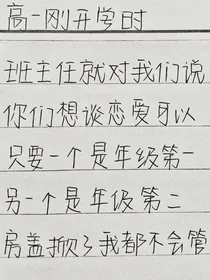 高一刚开学时
班主任就对我们说
你们想谈恋爱可以
只要一个是年级第一
另一个是年级第二
房盖掀了我都不会管